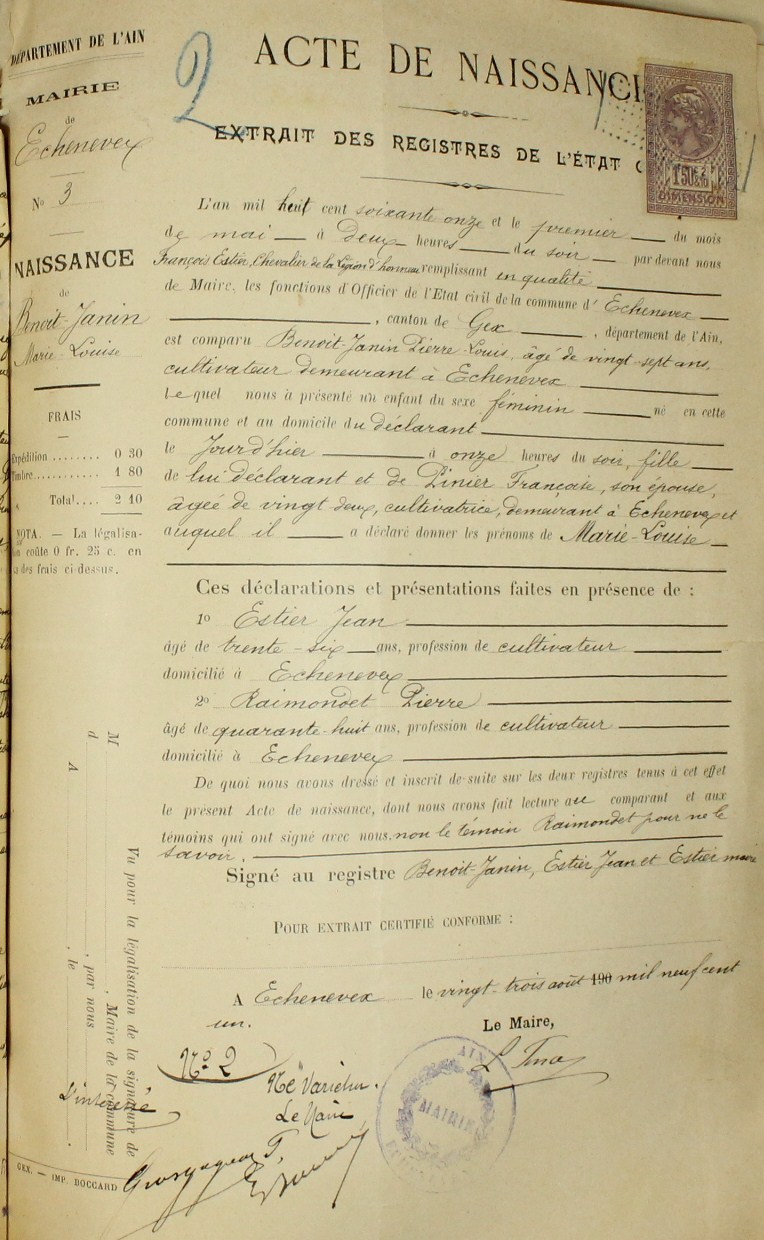 DÉPARTEMENT DE L'AIN
MAIRIE
de
Echenevex
No 3
NAISSANCE
de
Benoit-Janin
Marie-Louise
FRAIS
Expédition........ 0 30
Timbre........... 1 80
Total.... 2 10
NOTA. — La légalisa-
coûte 0 fr. 25 c. en
des frais ci-dessus.
2
ACTE DE NAISSANC
EXTRAIT DES REGISTRES DE L'ÉTAT C
1F50c
DIMENSION
L'an mil huit cent soixante onze et le premier du mois
de mai à Deux heures du soir par devant nous
François Estier, Chevalier de la Légion d'honneur remplissant en qualité
de Maire, les fonctions d'Officier de l'Etat civil de la commune d'Echenevex
, canton de Gex, département de l'Ain,
est comparu Benoit-Janin Pierre Louis, âgé de vingt-sept ans,
cultivateur demeurant à Echenevex
Lequel nous a présenté un enfant du sexe féminin né en cette
commune et au domicile du déclarant
le Jour d'hier à onze heures du soir, fille
de lui déclarant et de Pinier Françoise, son épouse,
âgée de vingt deux, cultivatrice, demeurant à Echenevex et
auquel il a déclaré donner les prénoms de Marie-Louise
Ces déclarations et présentations faites en présence de :
1o Estier Jean
âgé de trente-six ans, profession de cultivateur
domicilié à Echenevex
2o Raimondet Pierre
âgé de quarante-huit ans, profession de cultivateur
domicilié à Echenevex
De quoi nous avons dressé et inscrit de suite sur les deux registres tenus à cet effet
le présent Acte de naissance, dont nous avons fait lecture au comparant et aux
témoins qui ont signé avec nous, non le témoin Raimondet pour ne le
savoir.
Signé au registre Benoit-Janin, Estier Jean et Estier maire
POUR EXTRAIT CERTIFIÉ CONFORME :
A Echenevex le vingt-trois août 190 mil neuf cent
un.
Le Maire,
No 2
Le Maire
AIN
MAIRIE
Vu pour la légalisation de la signature de
M , Maire de la commune
d , par nous
A , le .
GEX. — IMP. BOCCARD